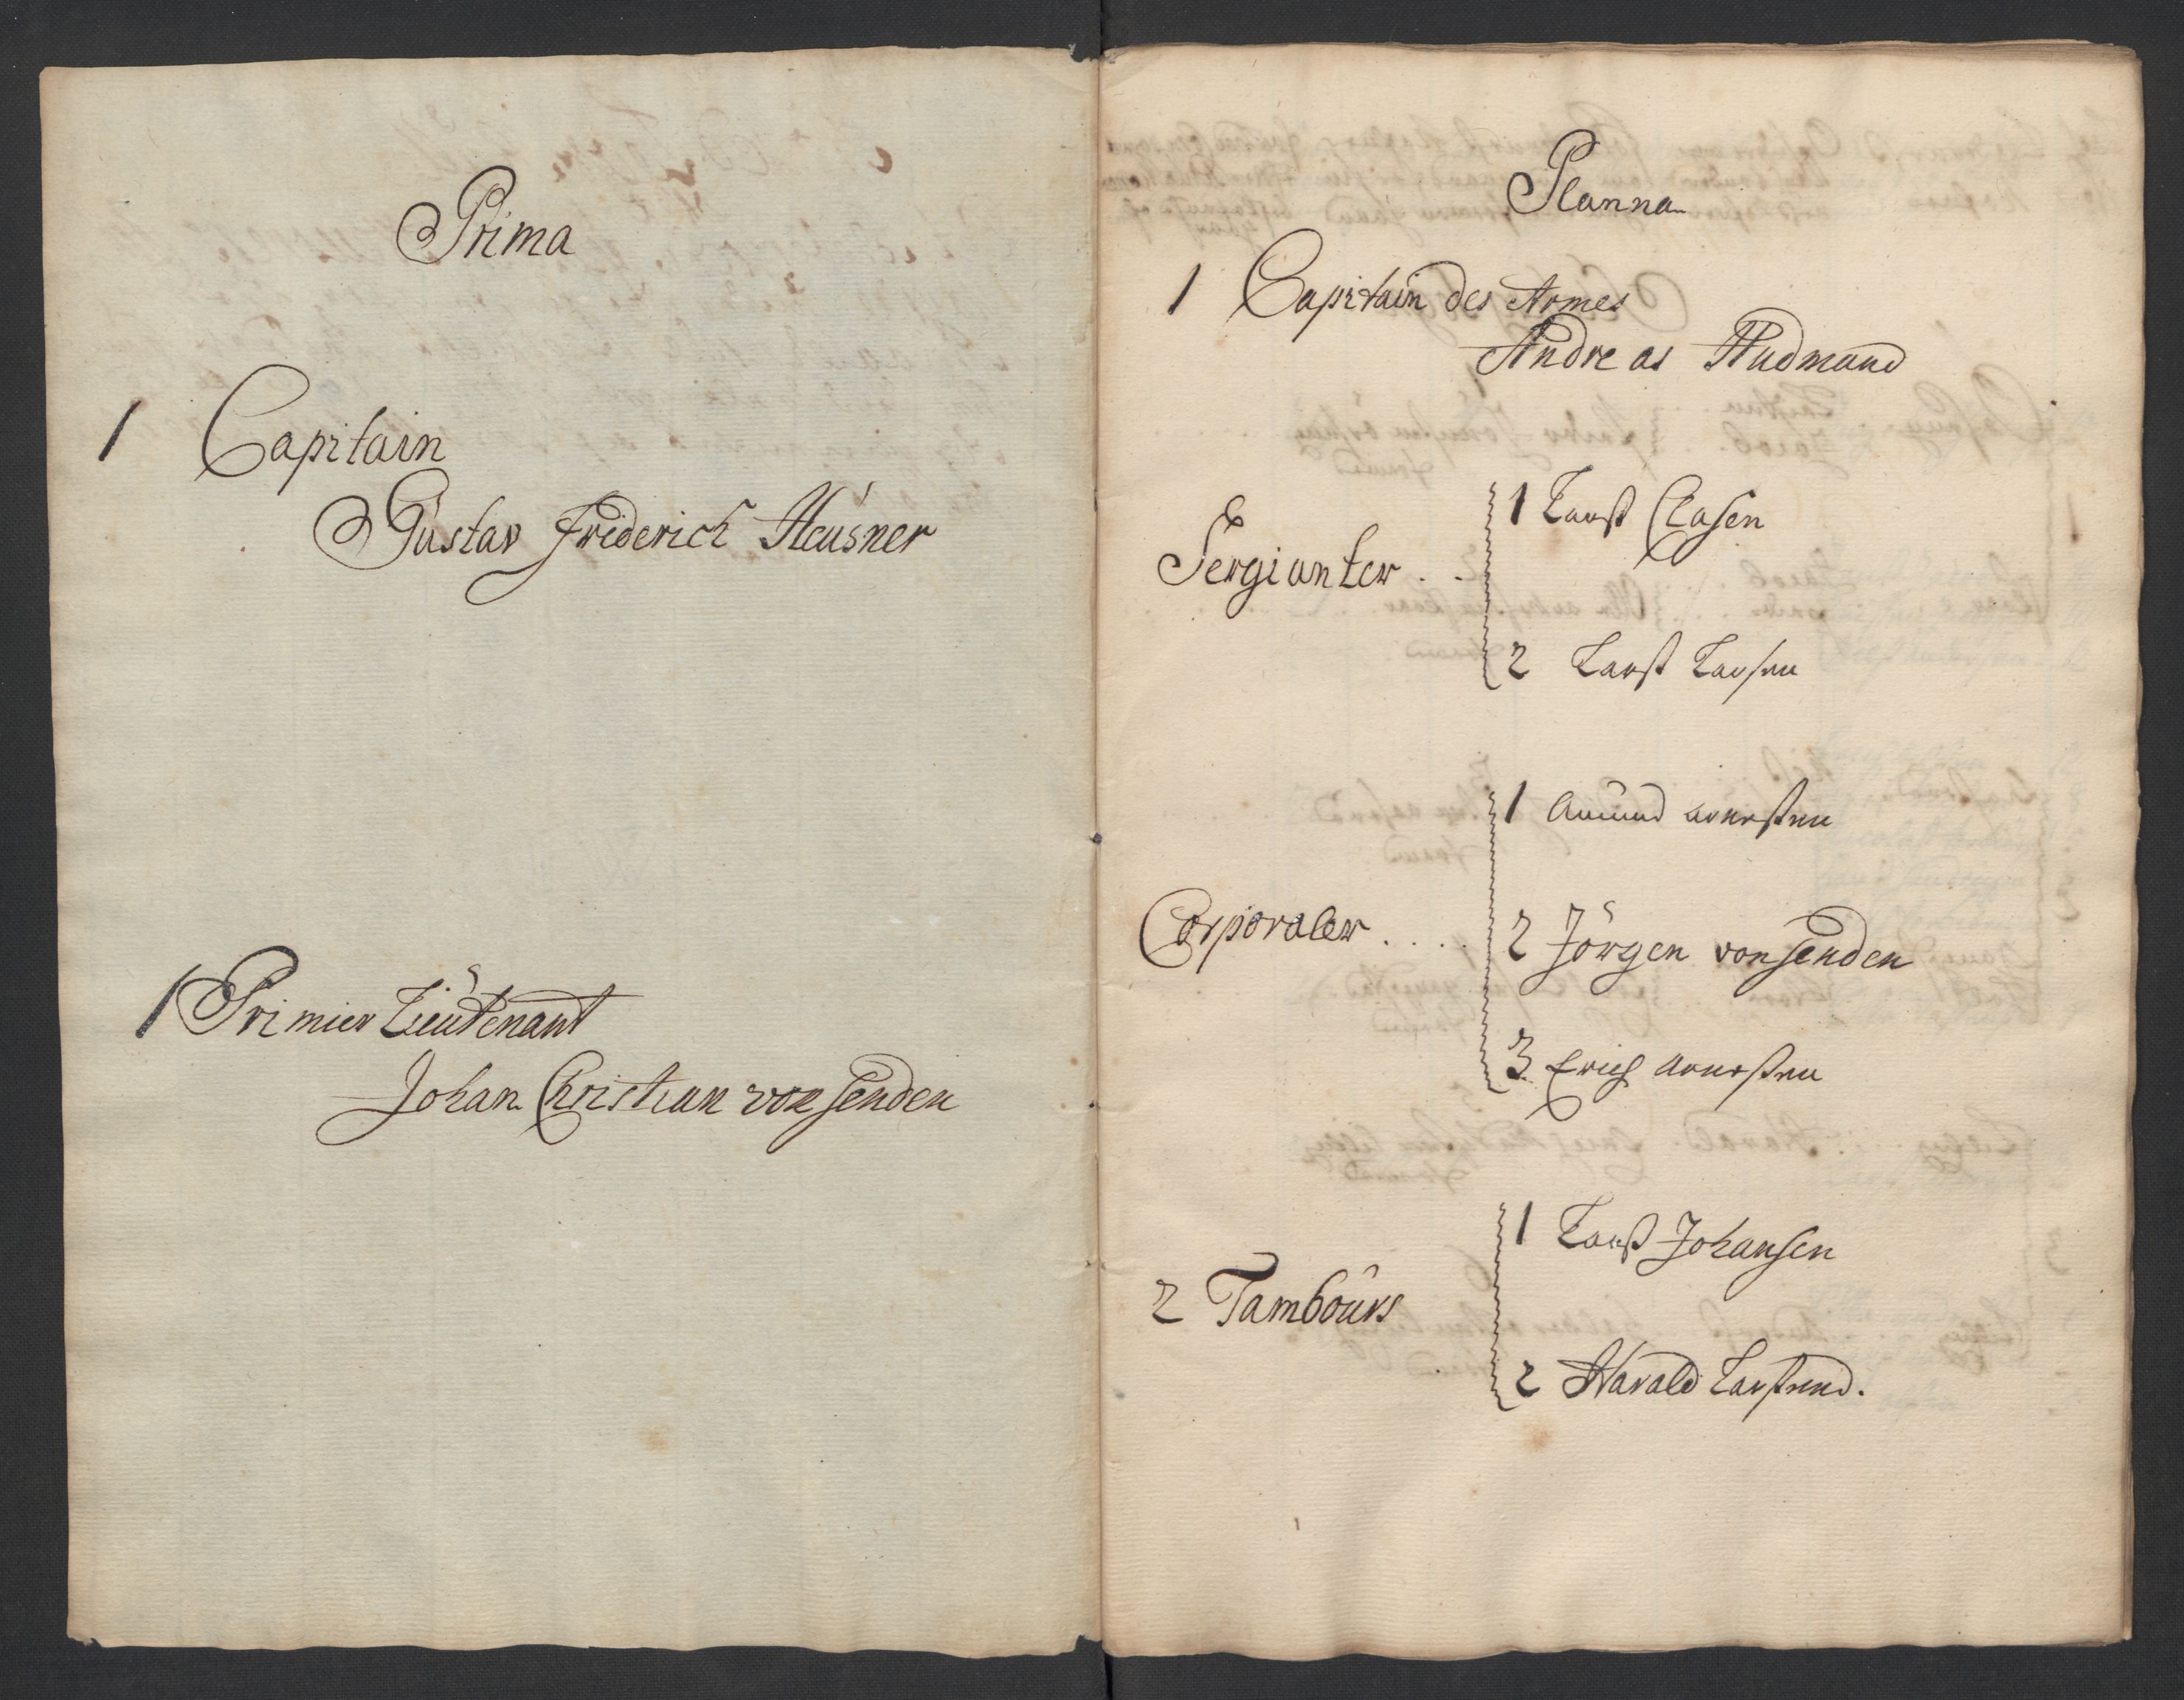 Prima
1 Capitain
Gustav Friderich Heusner
1 Primier Lieutenant
Johan Christian von Senden
Planna
1 Capitain des Armes
Andreas Hudmand
Sergianter . .
1 Larß Clasen
2 Larß Larsen
Corporaler . . . .
1 Amund
2 Jörgen von Senden
3 Erich
2 Tambours
1 Larß Johansen
2 Harald